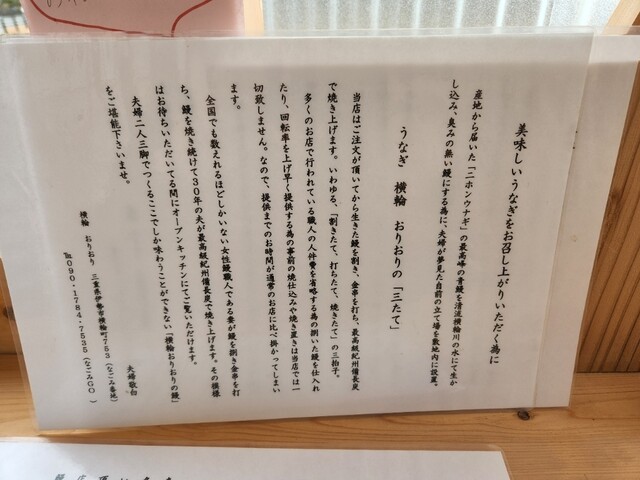 美味しいうなぎをお召し上がりいただく為に
産地から届いた「ニホンウナギ」の最高峰の青鰻を清流横輪川の水にて生か
し込み、臭みの無い鰻にする為に、夫婦が夢見た自前の立て場を敷地内に設置。
うなぎ 横輪 おりおりの「三たて」
当店はご注文が頂いてから生きた鰻を割き、金串を打ち、最高級紀州備長炭
で焼き上げます。いわゆる、「割きたて、打ちたて、焼きたて」の三拍子。
多くのお店で行われている職人の人件費を省略する為の捌いた鰻を仕入れ
たり、回転率を上げ早く提供する為の事前の焼仕込みや焼き置きは当店では一
切致しません。なので、提供までのお時間が通常のお店に比べ掛かってしまい
ます。
全国でも数えれるほどしかいない女性鰻職人である妻が鰻を捌き金串を打
ち、鰻を焼き続けて30年の夫が最高級紀州備長炭で焼き上げます。その模様
はお待ちいただいてる間にオープンキッチンにてご覧いただけます。
夫婦二人三脚でつくるここでしか味わうことができない「横輪おりおりの鰻」
をご堪能下さいませ。
夫婦敬白
横輪 おりおり 三重県伊勢市横輪町753(なごみ番地)
℡090-1784-7535(なごみGO)